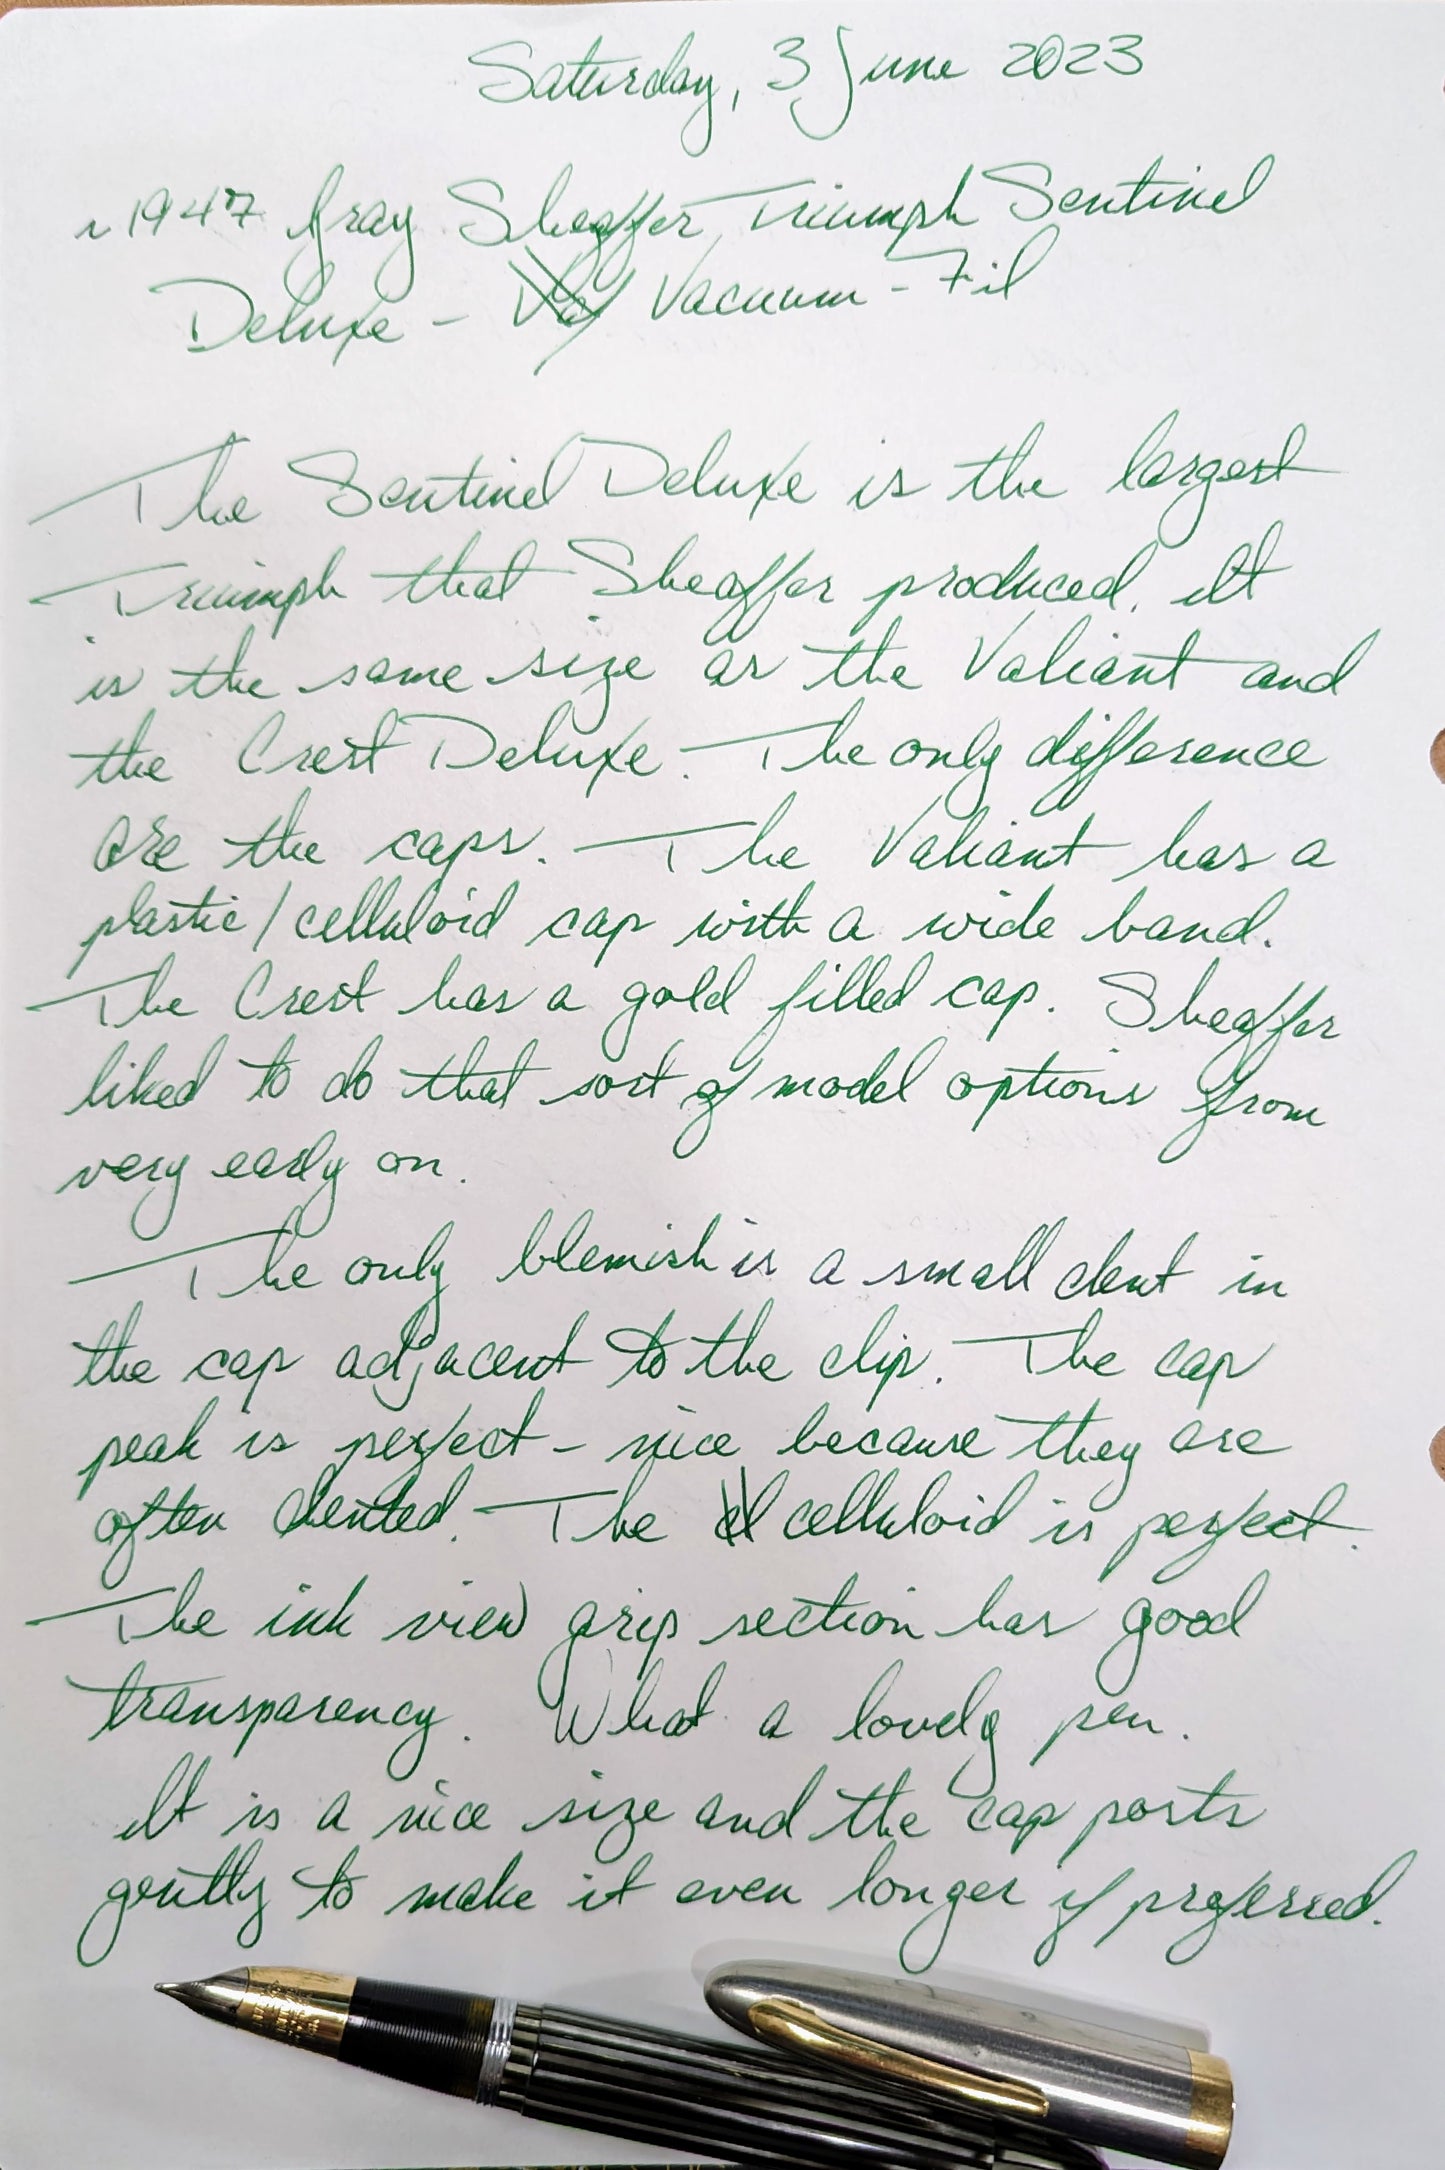 Saturday, 3 June 2023
~1947 Gray Sheaffer Triumph Sentinel
Deluxe - Vacuum-Fil
The Sentinel Deluxe is the largest
Triumph that Sheaffer produced. It
is the same size as the Valiant and
the Crest Deluxe. The only difference
are the caps. The Valiant has a
plastic/celluloid cap with a wide band.
The Crest has a gold filled cap. Sheaffer
liked to do that sort of model options from
very early on.
The only blemish is a small dent in
the cap adjacent to the clip. The cap
peak is perfect - nice because they are
often dented. The celluloid is perfect.
The ink view grip section has good
transparency. What a lovely pen.
It is a nice size and the cap posts
gently to make it even longer if preferred.